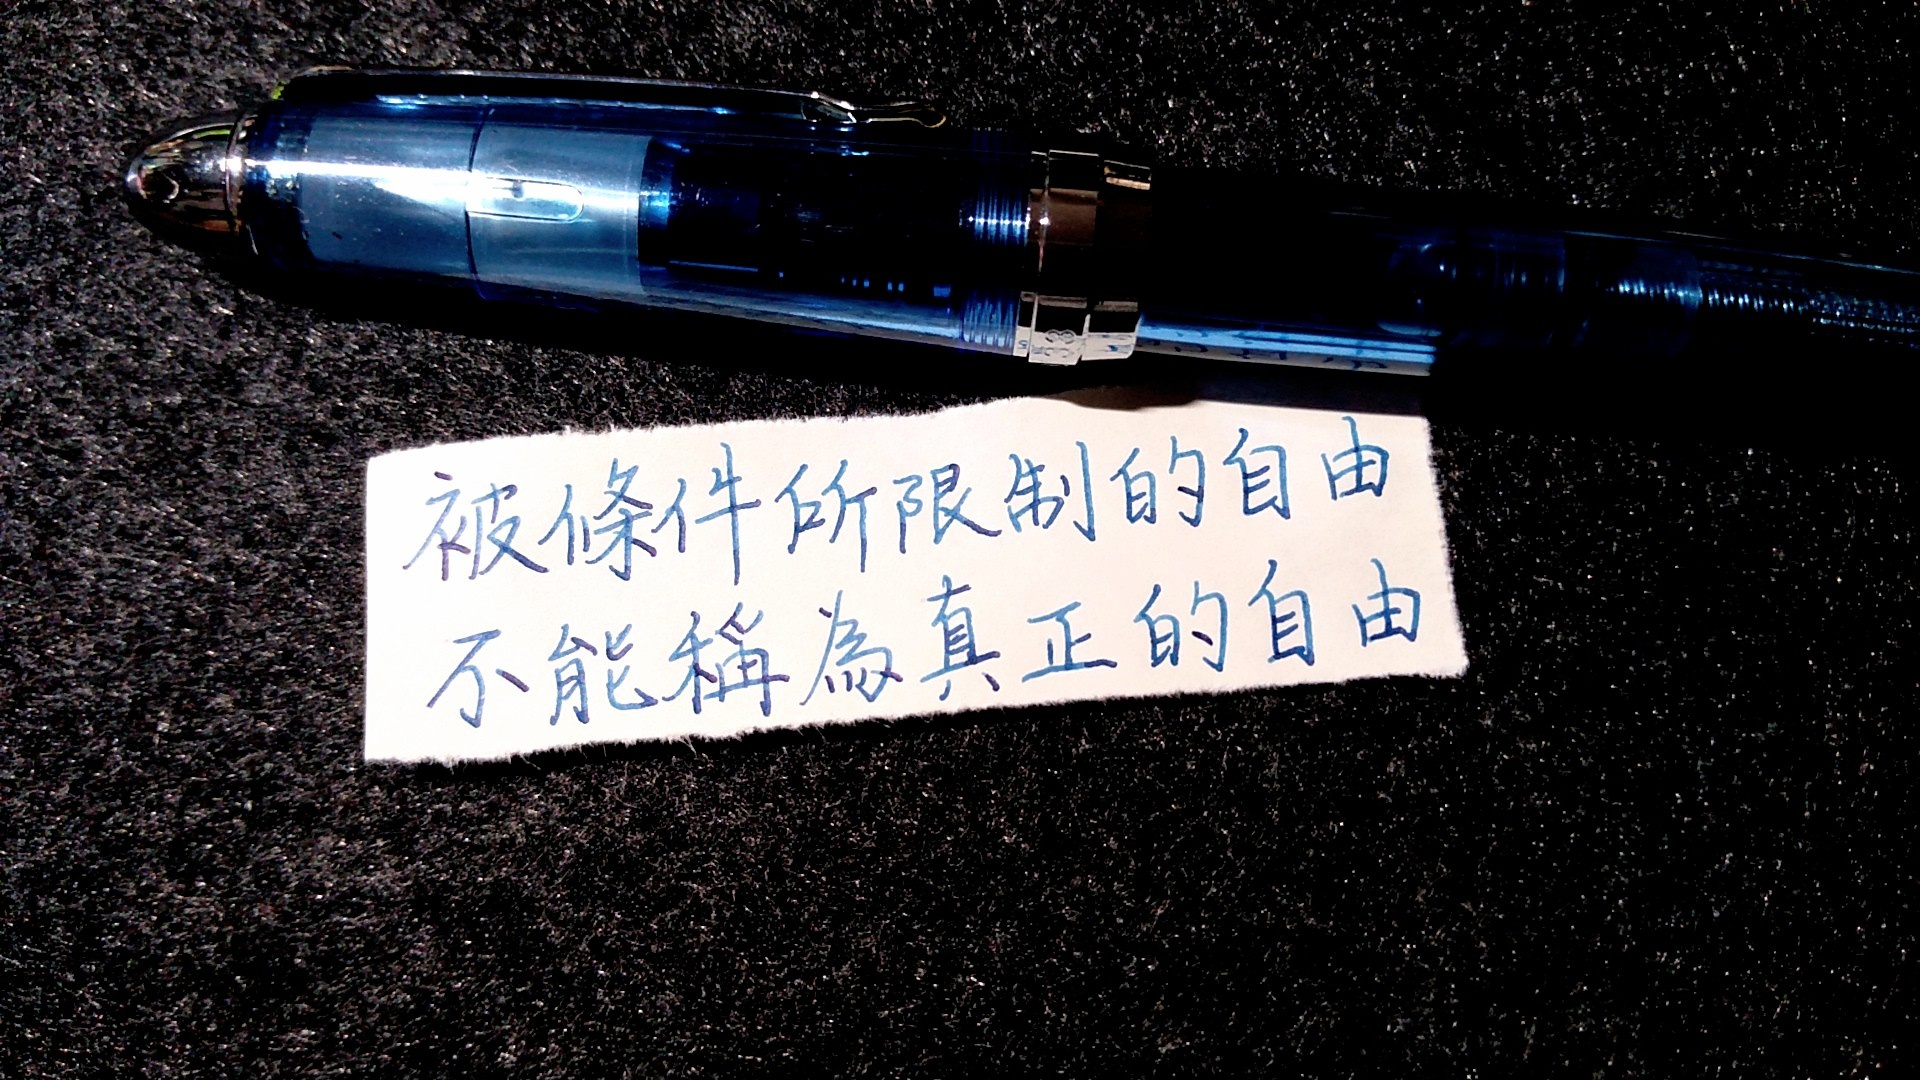 被條件所限制的自由
不能稱為真正的自由